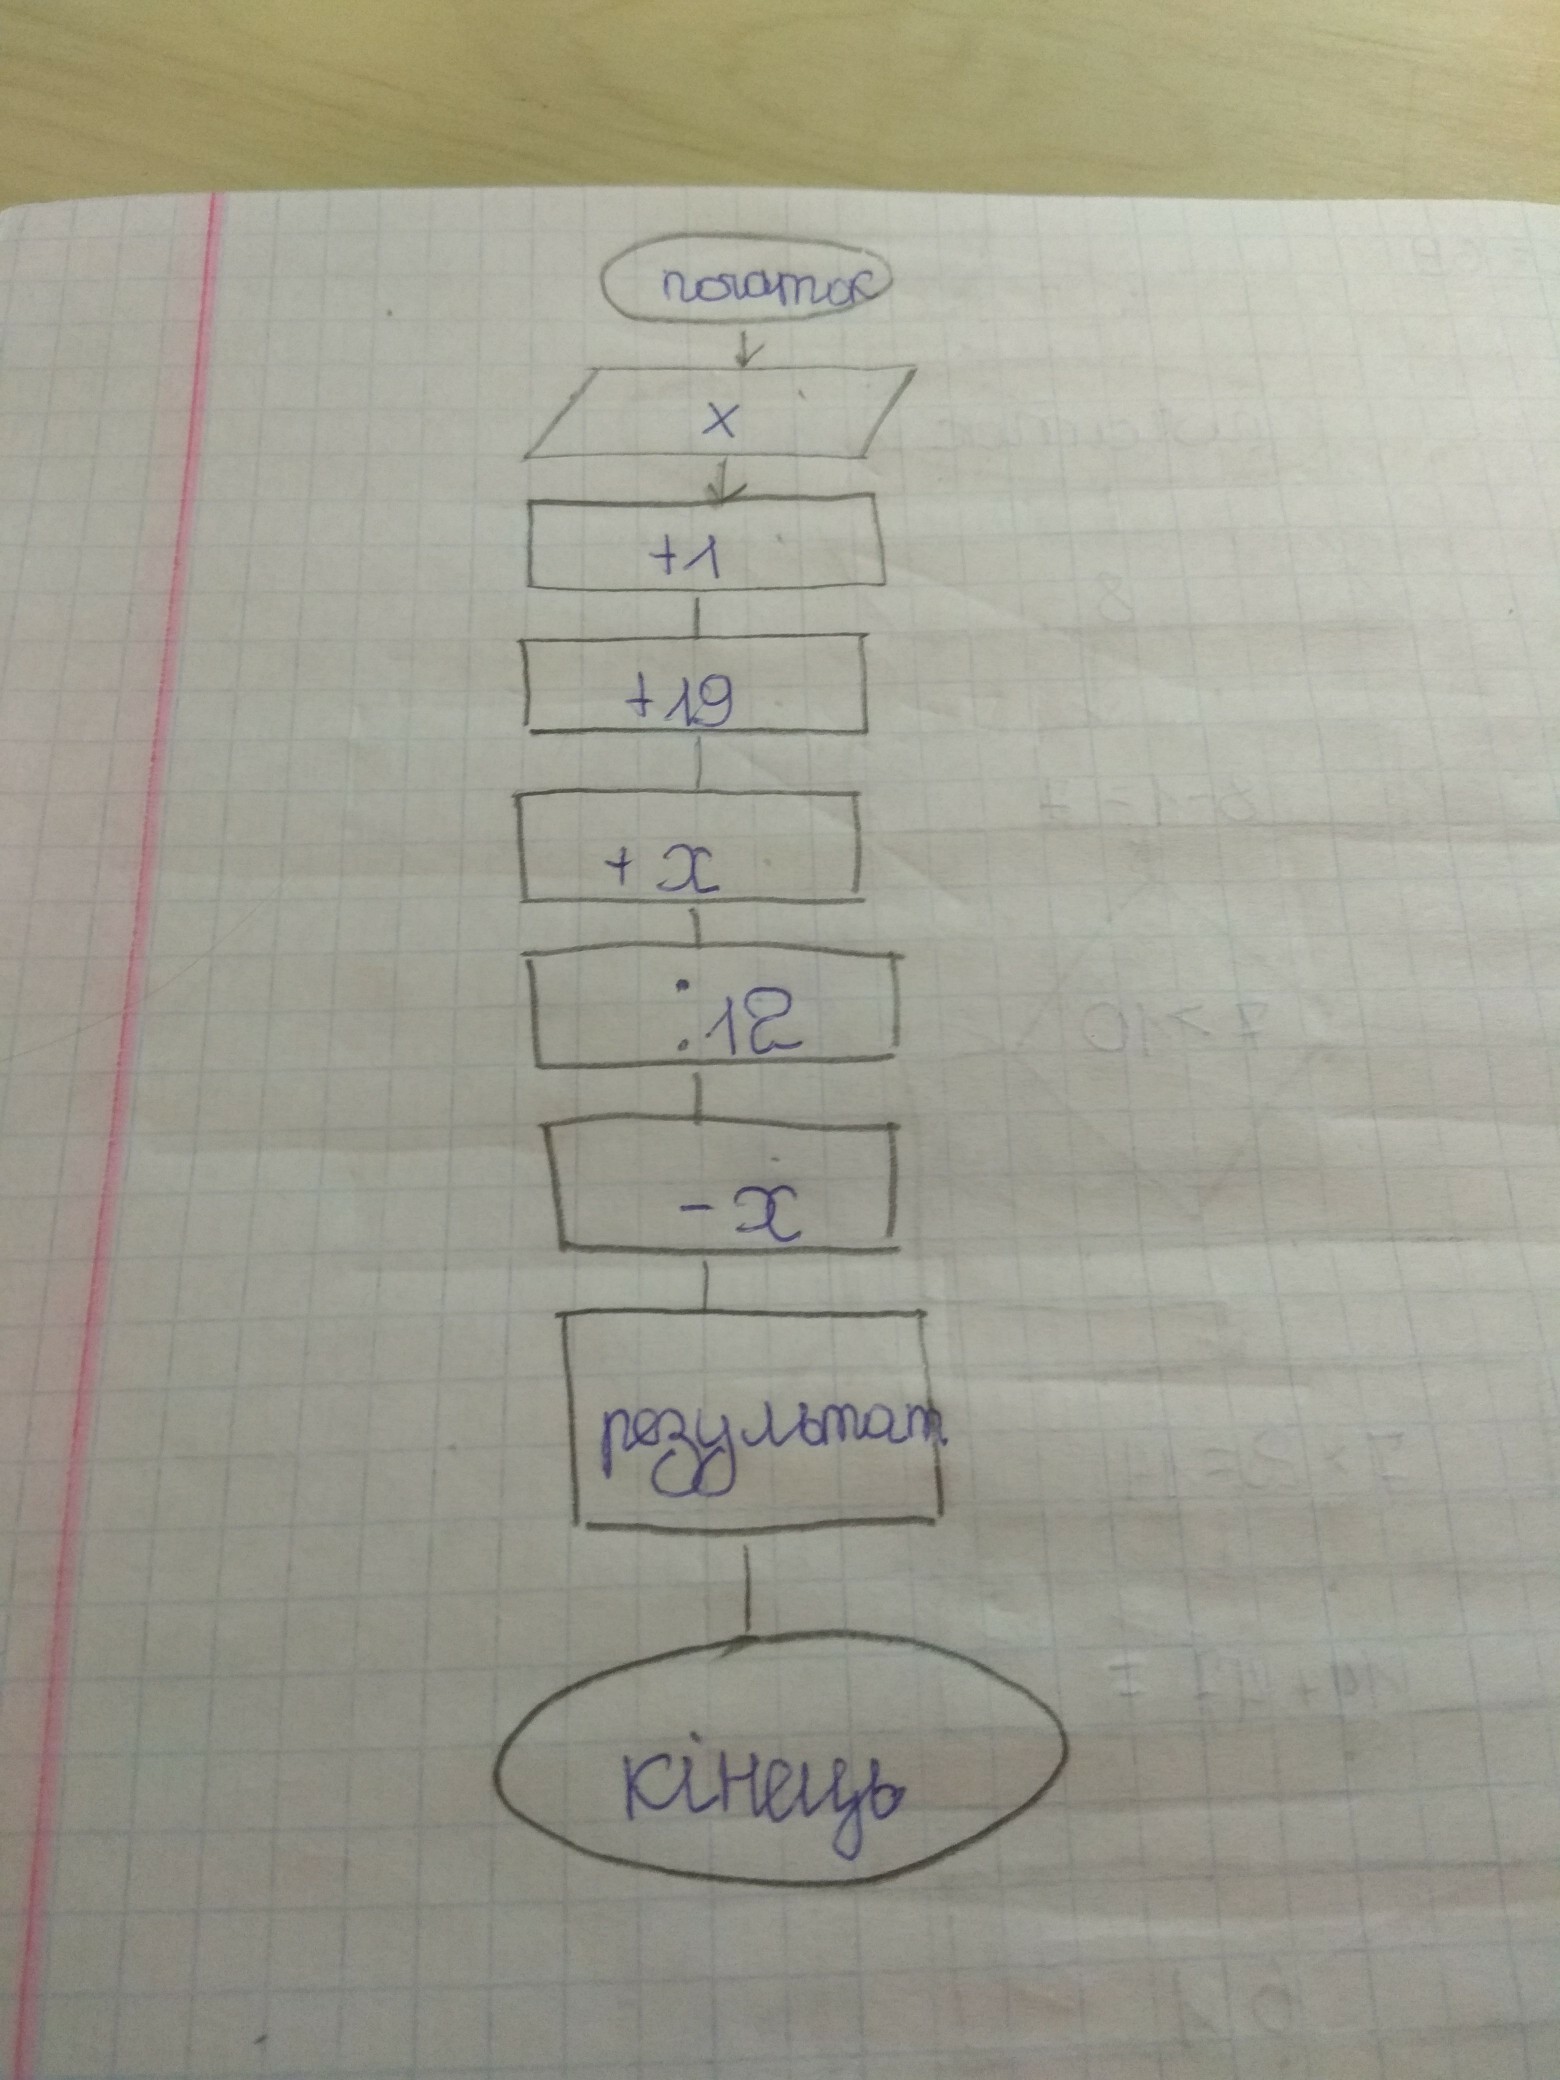 початок
x
+1
+19
+x
:12
-x
результат
кінець